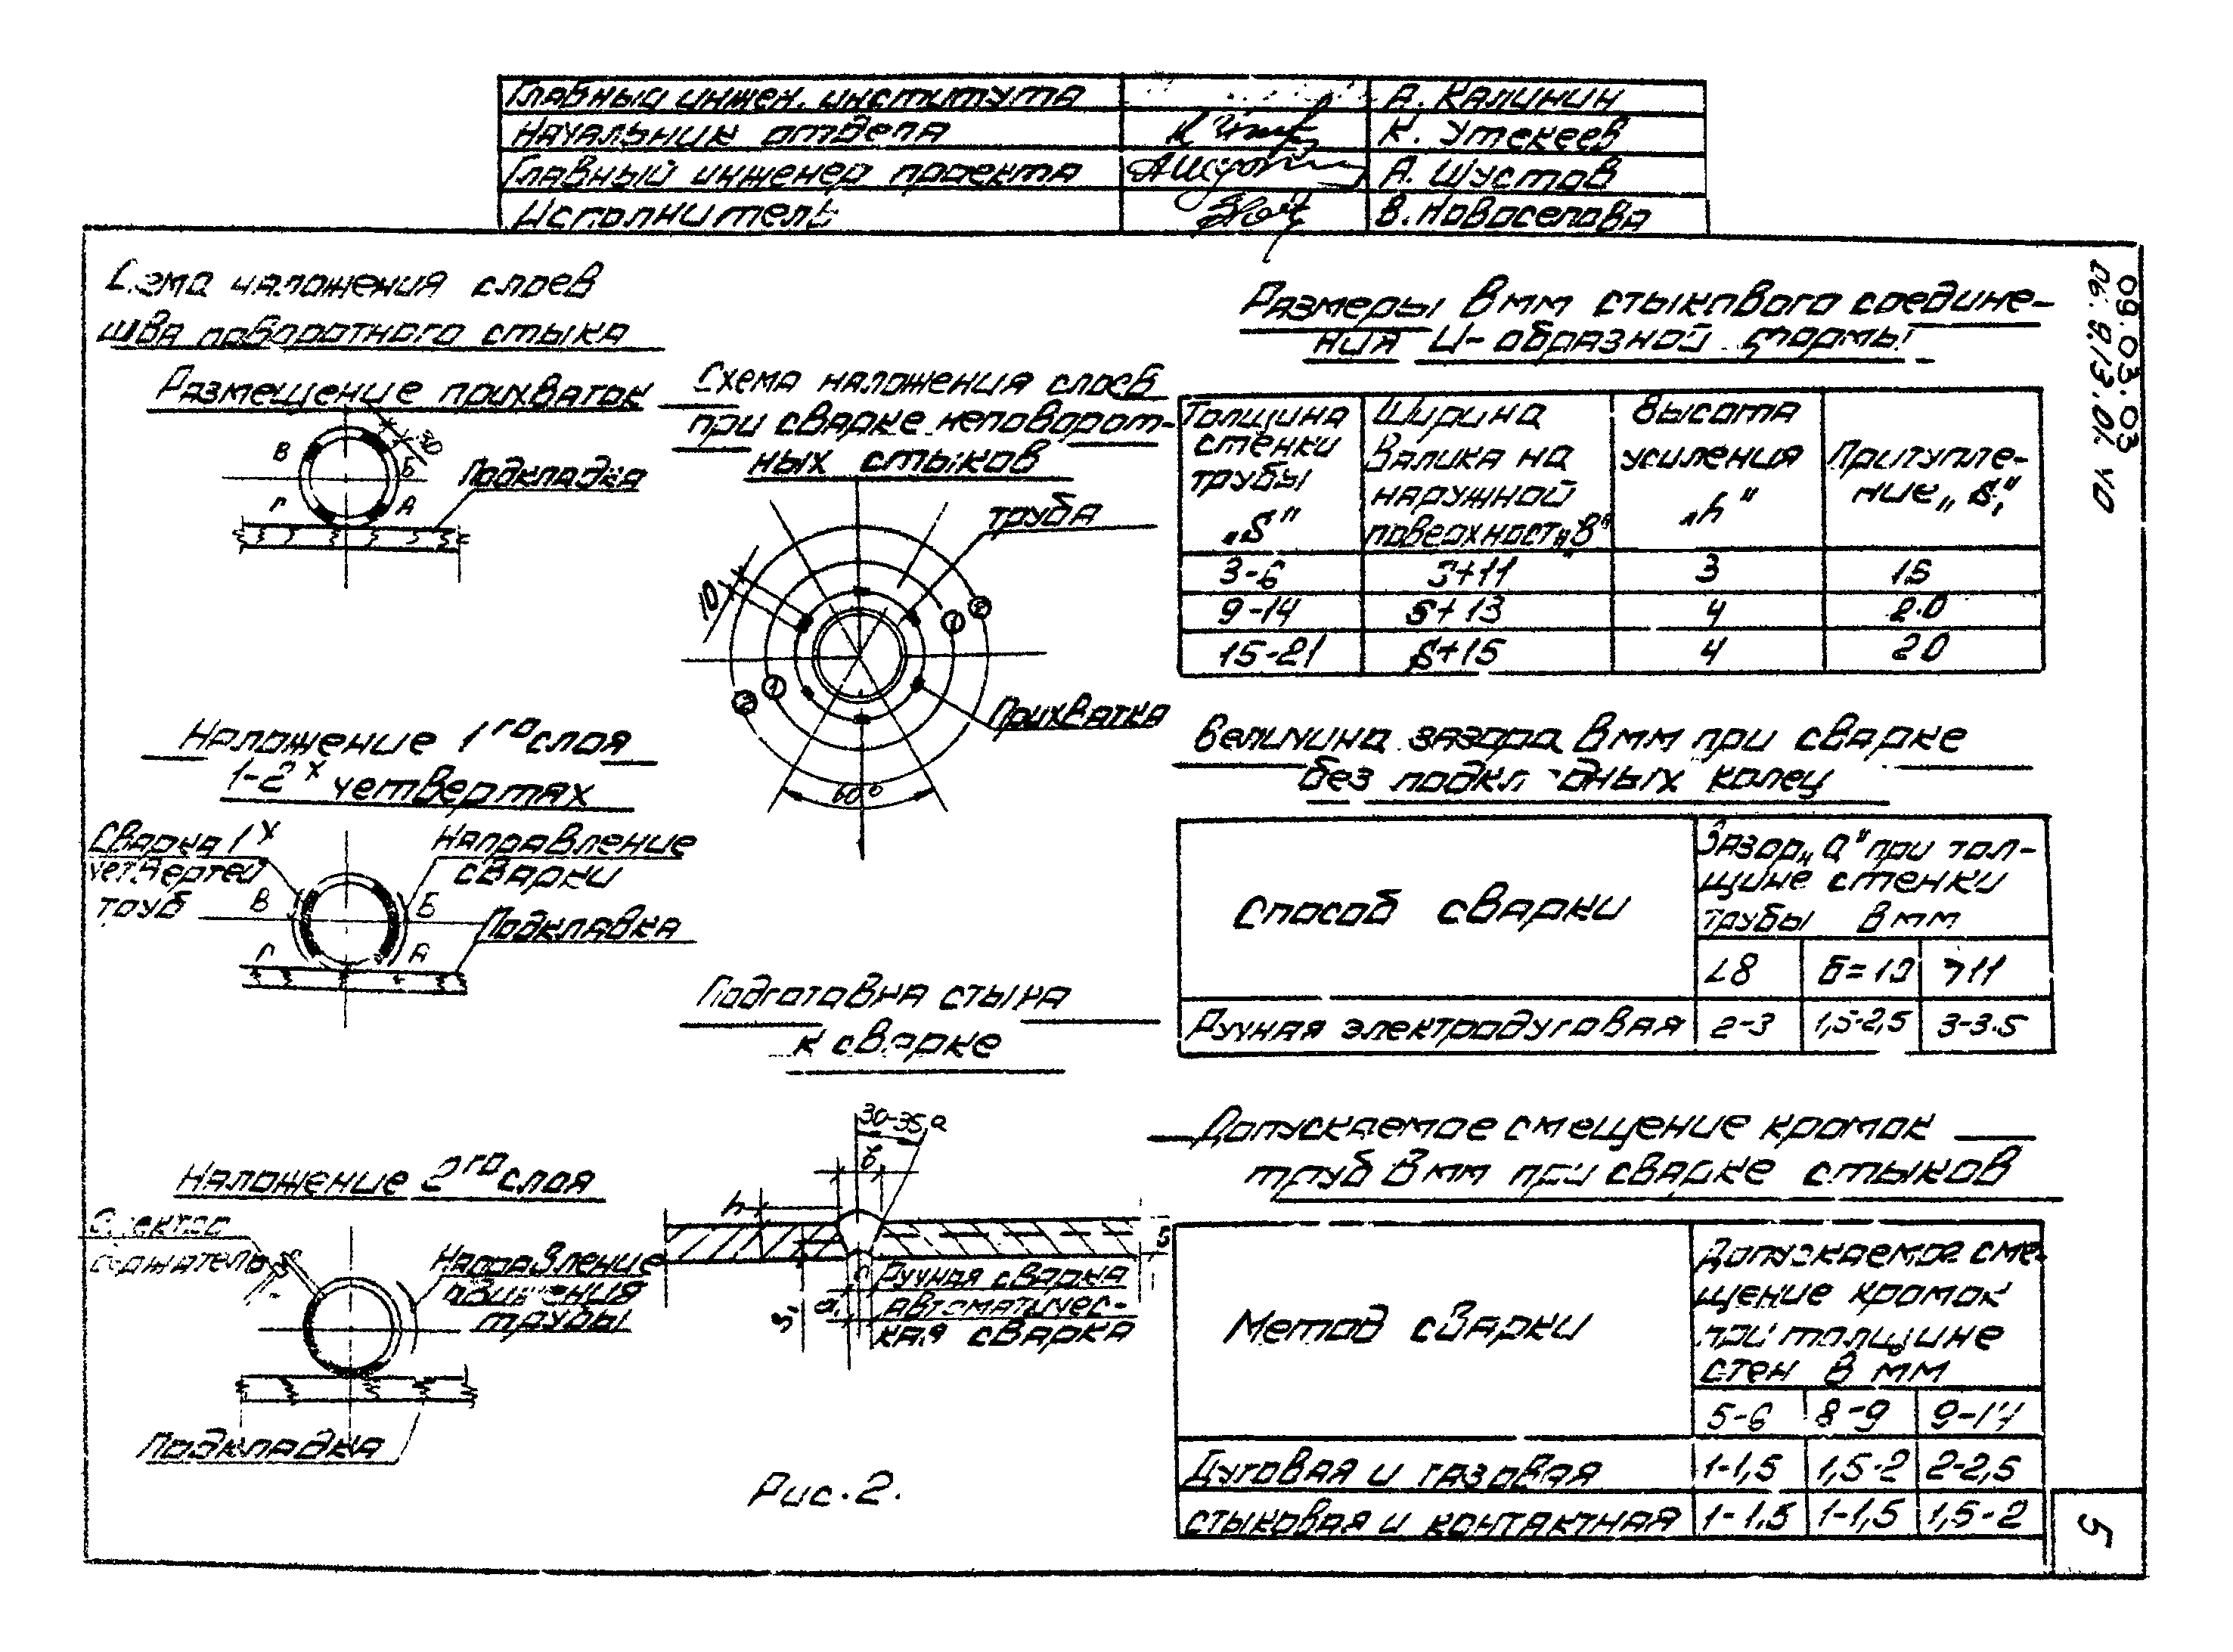 Главный инжен. института А. Калинин
Начальник отдела К. Утекеев
Главный инженер проекта А. Шустов
Исполнитель В. Новоселова
09.03.03
06.9.13.01.40
Схема наложения слоев
шва поворотного стыка
Размещение прихваток
30
В
Б
Г
А
Подкладка
Наложение 1го слоя
1-2х четвертях
Сварка 1х
четвертей
труб
Направление
сварки
В
Б
Г
А
Подкладка
Наложение 2го слоя
Направление
движения
трубы
Подкладка
Схема наложения слоев
при сварке неповорот-
ных стыков
труба
10
1
2
2
1
Прихватка
60°
Подготовка стыка
к сварке
30-35
в
h
S
S1
a
Ручная сварка
автоматичес-
кая сварка
Рис. 2.
Размеры в мм стыкового соедине-
ния U-образной формы
Толщина стенки трубы „S" Ширина валика на наружной поверхност „В" Высота усиления „h" Приτупле-ние „S1"
3-6 S+11 3 1.5
9-14 S+13 4 2.0
15-21 S+15 4 2.0
Величина зазора в мм при сварке
без подкладных колец
Способ сварки
Зазор „а" при тол-
щине стенки
трубы в мм
<8 8=10 >11
Ручная электродуговая 2-3 1,5-2,5 3-3.5
Допускаемое смещение кромок
труб в мм при сварке стыков
Метод сварки
Допускаемое сме-
щение кромок
при толщине
стен в мм
5-6 8-9 9-14
Дуговая и газовая 1-1,5 1,5-2 2-2,5
стыковая и контактная 1-1.5 1-1,5 1,5-2
5